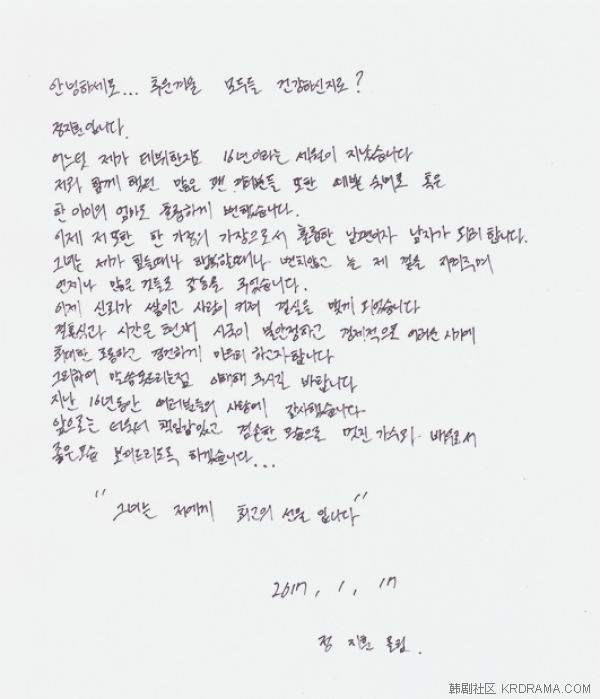 안녕하세요... 추운겨울 모두들 건강하신지요?
정지훈입니다.
어느덧 제가 데뷔한지도 16년이라는 세월이 지났습니다
저와 함께 했던 많은 팬 여러분들 또한 예쁜 숙녀로 혹은
한 아이의 엄마로 훌륭하게 변했습니다.
이제 저 또한 한 가정의 가장으로서 훌륭한 남편이자 남자가 되려 합니다.
그녀는 제가 힘들때나 행복할때나 변치않고 늘 제 곁을 지켜주며
언제나 많은 것들로 감동을 주었습니다.
이제 신뢰가 쌓이고 사랑이 커져 결실을 맺게 되었습니다
결혼식과 시간은 현재 시국이 불안정하고 경제적으로 어려운 시기에
최대한 조용하고 경건하게 마무리 하고자합니다
그리하여 말씀못드리는점 이해해 주시길 바랍니다
지난 16년동안 여러분들의 사랑에 감사했습니다
앞으로는 더욱더 책임감있고 겸손한 모습으로 멋진 가수와 배우로서
좋은모습 보여드리도록 하겠습니다...
"그녀는 저에게 최고의 선물 입니다"
2017. 1. 17
정 지훈 올림.
韩剧社区 KRDRAMA.COM